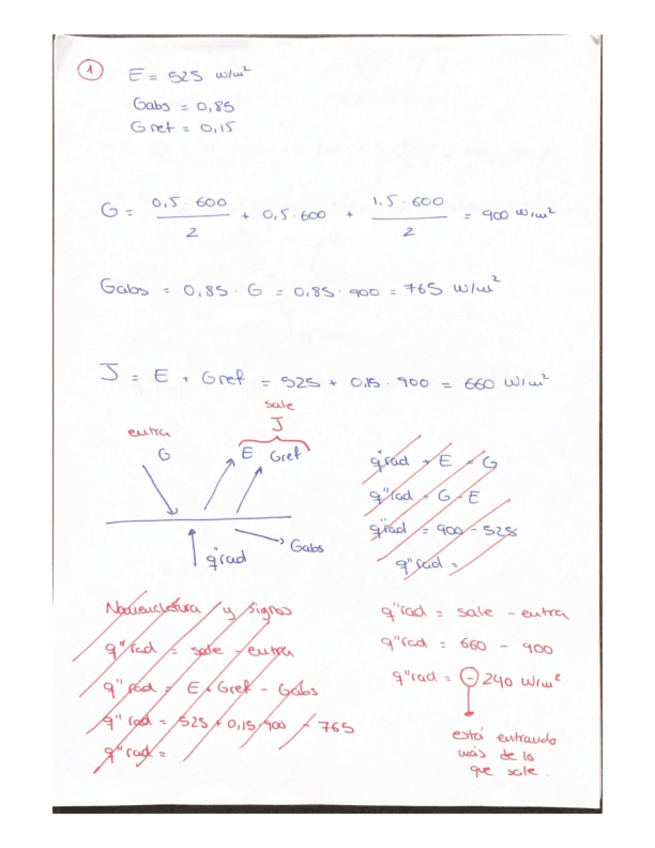 1
E = 525 w/m²
Gabs = 0,85
Gref = 0,15
G = 0,5 · 600 / 2 + 0,5 · 600 + 1,5 · 600 / 2 = 900 W/m²
Gabs = 0,85 · G = 0,85 · 900 = 765 W/m²
J = E + Gref = 525 + 0,15 · 900 = 660 W/m²
sale
J
entra
G
E Gref
q"rad
Gabs
q"rad + E = G
q"rad = G - E
q"rad = 900 - 525
q"rad =
Nomenclatura y signos
q"rad = sale - entra
q"rad = E + Gref - Gabs
q"rad = 525 + 0,15·900 - 765
q"rad =
q"rad = sale - entra
q"rad = 660 - 900
q"rad = - 240 W/m²
está entrando
más de lo
que sale.